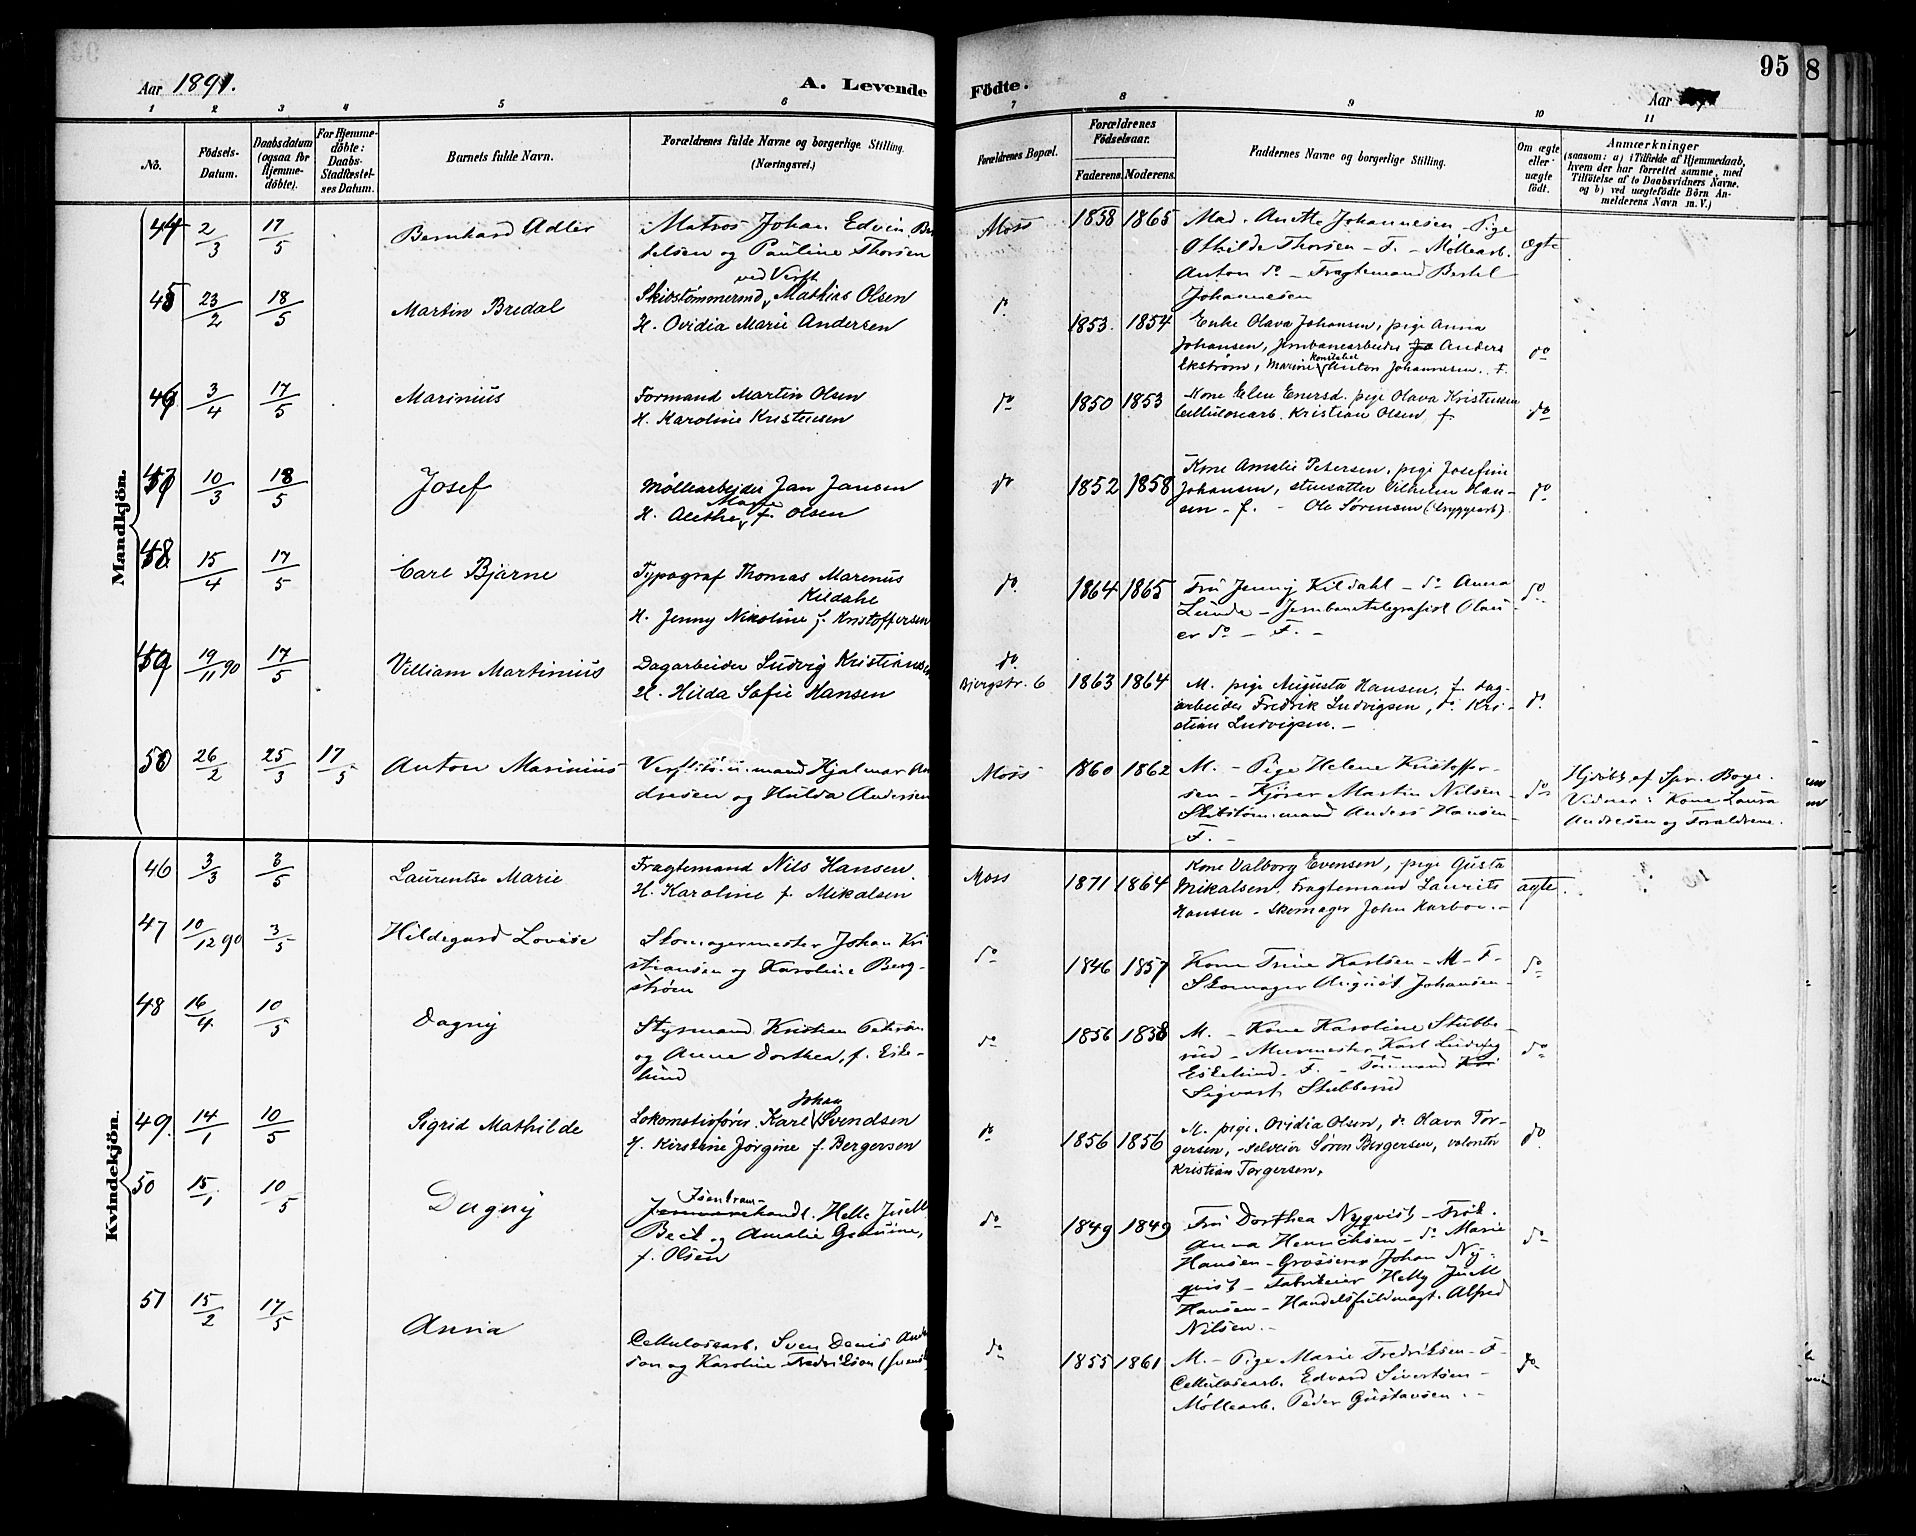 Aar 1891.
A. Levende
Födte.
95
8
Aar
1 2 3 4 5 6 7 8 9 10 11
No.
Födsels-
Datum.
Daabsdatum
(ogsaa for
Hjemme-
döbte).
For Hjemme-
döbte:
Daabs-
Stadfæstel-
ses Datum.
Barnets fulde Navn.
Forældrenes fulde Navne og borgerlige Stilling.
(Næringsvei.)
Forældrenes Bopæl.
Forældrenes
Födselsaar.
Faderens. Moderens.
Faddernes Navne og borgerlige Stilling.
Om ægte
eller
uægte
födt.
Anmærkninger
(saasom: a) i Tilfælde af Hjemmedaab,
hvem der har forrettet samme, med
Tilföielse af to Daabsvidners Navne,
og b) ved uægtefödte Börn An-
melderens Navn m. V.)
Mandkjön.
44 2/3 17/5 Bernhard Adler
Matros Johan Edvin Ber
telsen og Pauline Thorsen
Moss 1858 1865
Mad. Anette Johannesen - Pige
Othilde Thorsen - F. - Møllearb.
Anton do - Fragtemand Bertel
Johannesen
ægte
45 23/2 18/5 Martin Bredal
ved Verft
Skibstømmermd Mathias Olsen
H. Ovidia Marie Andersen
do 1853. 1854
Enke Olava Johansen, pige Anna
Johansen, Jernbanearbeider Anders
Ekstrøm, Marine konstabel Anton Johannesen. F.
do
46 3/4 17/5 Marinius
Formand Martin Olsen
H. Karoline Kristensen
do 1850 1853
Kone Elen Enersd. pige Olava Kristensen
Cellulosearb. Kristian Olsen f
do
47 10/3 18/5 Josef
Møllearbejder Jan Jansen
Marie
H. Alethe f. Olsen
do 1852 1858
Kone Amalie Petersen, pige Josefine
Johansen, stuesatter Vilhelm Han-
sen - f. - Ole Sørensen (bryggearb).
do
48 15/4 17/5 Carl Bjarne
Typograf Thomas Marenus
Kildahl
H. Jenny Nikoline f. Kristoffersen
do. 1864 1865
Fru Jenny Kildahl - do Anna
Lunde - Jernbanetelegrafist Olau-
er do - F. -
do
49 19/11 90 17/5 Villiam Martinius
Dagarbeider Ludvig Kristiansen
H. Hilda Sofie Hansen
do.
Bjergstr. 6 1863 1864
M. pige Augusta Hansen, f. dag-
arbeider Fredrik Ludvigsen, do. Kri-
stian Ludvigsen. -
do.
50 26/2 25/3 17/5 Anton Marinius
Verftstø.m.mand Hjalmar An
dresen og Hulda Andersen
Moss 1860 1862
M. - Pige Helene Kristoffer-
sen - Kjører Martin Nilsen -
Skibstøm.mand Anders Hansen -
F. -
do
Hjdøbt af Spr. Boye.
Vidner: Kone Laura
Andresen og Forældrene.
Kvindekjön.
46 3/3 3/5 Laurentse Marie
Fragtemand Nils Hansen.
H. Karoline f. Mikalsen
Moss 1871 1864
Kone Valborg Evensen, pige Gusta
Mikalsen. Fragtemand Laurits
Hansen - Skomager John Karboe. -
ægte.
47 10/12 90 3/5 Hildegard Lovise
Skomagermester Johan Kri
stiansen og Karoline Berg-
strøm
do 1846 1857
Kone Trine Karlsen - M - F -
Skomager August Johansen -
do
48 16/4 10/5 Dagny
Styrmand Kristian Petersen
og Anne Dorthea, f. Eske-
lund
do 1856 1858
M. - Kone Karoline Stubbe-
rud - Murmester Karl Ludvig
Eskelund - F. - Formand
Sigvart Stubberud
do
49. 14/1 10/5 Sigrid Mathilde
Johan
Lokomotivfører Karl Svendsen
H. Kirstine Jørgine f. Bergersen
do 1856 1856
M. pige. Ovidia Olsen, do Olava Tor-
gersen, selveier Søren Bergersen, volontør
Kristian Torgersen,
do
50 15/1 10/5 Dagny
Isenkram-
handl. Helle Juell
Beck og Amalie Genuine,
f. Olsen
do 1849 1849
Fru Dorthea Nyqvist - Frøk.
Anna Henrichsen - do Marie
Hansen - Grosserer Johan Ny-
qvist - Fabrikeier Helly Juell
Hansen - Handelsfuldmægt. Alfred
Nilsen. -
do
51 15/2 17/5 Anna
Cellulosearb. Sven Denis Ander
son og Karoline Fredrikson (svensk
do 1855 1861
M. - Pige Marie Fredriksen - F -
Cellulosearb. Edvard Sivertsen -
Møllearb. Peder Gustavsen. -
do